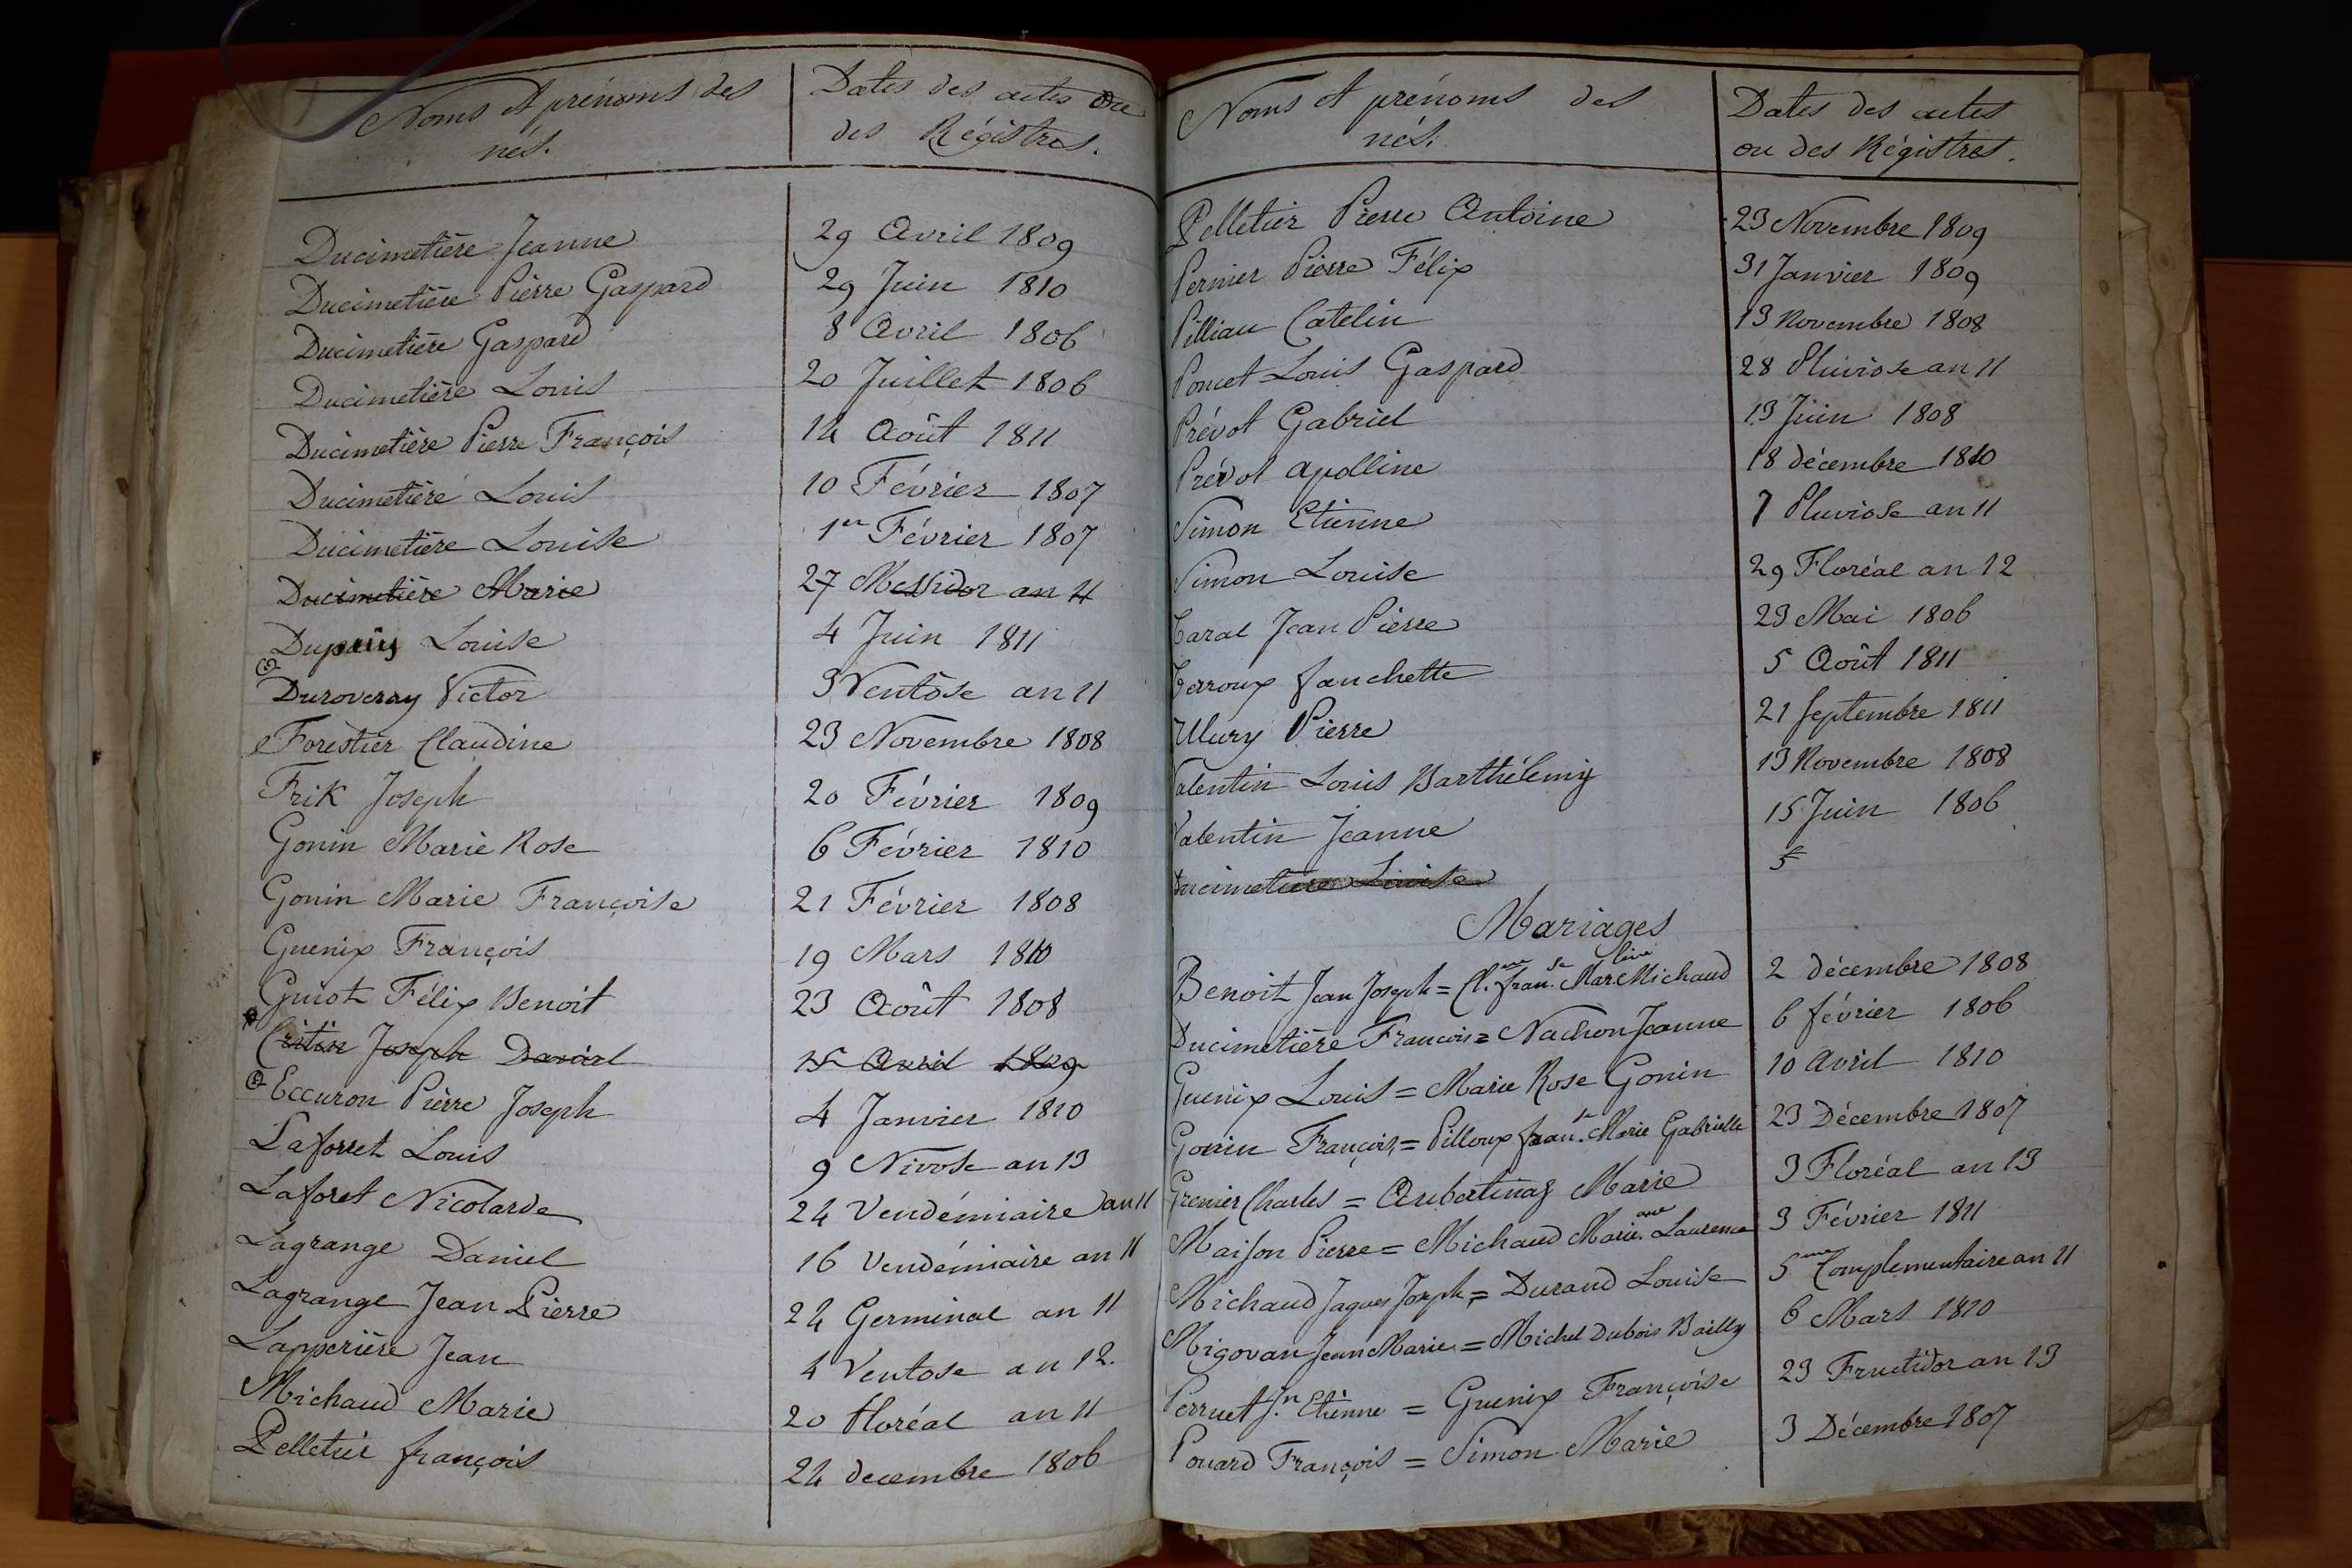 Noms et prénoms des | Dates des actes ou
nés. | des Régistres.
Ducimetière Jeanne | 29 Avril 1809
Ducimetière Pierre Gaspard | 29 Juin 1810
Ducimetière Gaspard | 8 Avril 1806
Ducimetière Louis | 20 Juillet 1806
Ducimetière Pierre François | 14 Août 1811
Ducimetière Louis | 10 Février 1807
Ducimetière Louise | 1er Février 1807
Ducimetière Marie | 27 Messidor an 11
Louise | 4 Juin 1811
Duroveray Victor | 3 Ventôse an 11
Forestier Claudine | 23 Novembre 1808
Frik Joseph | 20 Février 1809
Gonin Marie Rose | 6 Février 1810
Gonin Marie Françoise | 21 Février 1808
Guenix François | 19 Mars 1810
Guiot Félix Benoit | 23 Août 1808
Critin Joseph | 15 Avril 1809
Eccuron Pierre Joseph | 4 Janvier 1810
Laforret Louis | 9 Nivose an 13
Laforet Nicolarde | 24 Vendémiaire an 11
Lagrange Daniel | 16 Vendémiaire an 11
Lagrange Jean Pierre | 24 Germinal an 11
Lapperière Jean | 4 Ventose an 12.
Michaud Marie | 20 floréal an 11
Pelletier françois | 24 decembre 1806
Noms et prénoms des | Dates des actes
nés. | ou des Régistres.
Pelletier Pierre Antoine | 23 Novembre 1809
Pernier Pierre Félix | 31 Janvier 1809
Pilliau Catelin | 13 Novembre 1808
Poncet Louis Gaspard | 28 Pluviose an 11
Prévot Gabriel | 13 Juin 1808
Prévot apolline | 18 décembre 1810
Simon Etienne | 7 Pluviose an 11
Simon Louise | 29 Floréal an 12
Taral Jean Pierre | 23 Mai 1806
Terroux fanchette | 5 Août 1811
Ulury Pierre | 21 Septembre 1811
Valentin Louis Barthélemy | 13 Novembre 1808
Valentin Jeanne | 15 Juin 1806
Ducimetière Louise | 5
Mariages
Benoit Jean Joseph = Cl. fran.se Mar. Michaud | 2 décembre 1808
Ducimetière François = Nachon Jeanne | 6 février 1806
Guenix Louis = Marie Rose Gonin | 10 avril 1810
Gonin François = Pilloux fran.se Marie Gabrielle | 23 Décembre 1807
Grenier Charles = Aubertinaz Marie | 3 Floréal an 13
Maison Pierre = Michaud Marie Laurence | 3 Février 1811
Michaud Jaques Joseph = Durand Louise | 5me Complementaire an 11
Migovan Jean Marie = Michel Dubois Bailly | 6 Mars 1810
Perruet Jn Etienne = Guenix Françoise | 23 Fructidor an 13
Pouard François = Simon Marie | 3 Décembre 1807